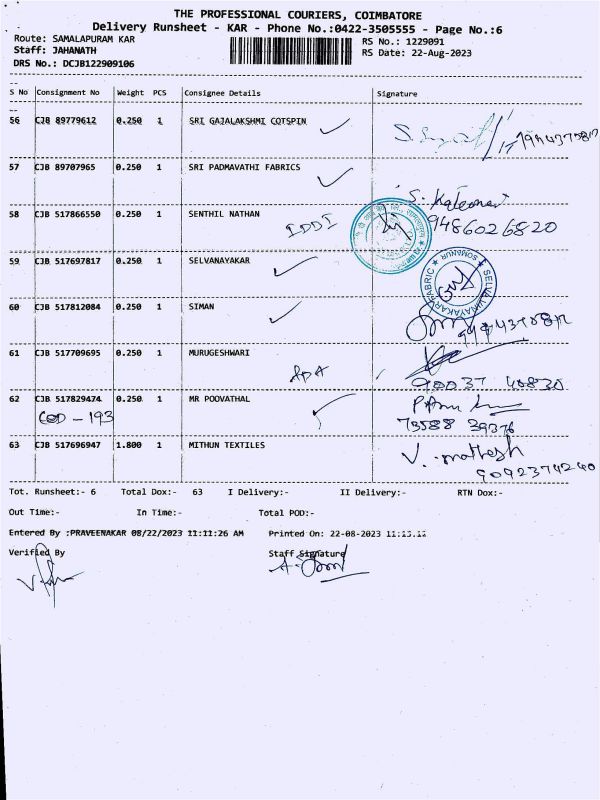 THE PROFESSIONAL COURIERS, COIMBATORE
Delivery Runsheet - KAR - Phone No.:0422-3505555 - Page No.:6
Route: SAMALAPURAM KAR
RS No.: 1229091
Staff: JAHANATH
RS Date: 22-Aug-2023
DRS No.: DCJB122909106
S No Consignment No Weight PCS Consignee Details Signature
56 CJB 89779612 0.250 1 SRI GAJALAKSHMI COTSPIN
57 CJB 89707965 0.250 1 SRI PADMAVATHI FABRICS
58 CJB 517866550 0.250 1 SENTHIL NATHAN IDDI 9486026820
59 CJB 517697817 0.250 1 SELVANAYAKAR
SELVANAYAKAR FABRIC ★ SOMANUR ★
60 CJB 517812084 0.250 1 SIMAN
61 CJB 517709695 0.250 1 MURUGESHWARI
90037 40830
62 CJB 517829474 0.250 1 MR POOVATHAL
COD - 193 73588 39376
63 CJB 517696947 1.800 1 MITHUN TEXTILES
9092374240
Tot. Runsheet:- 6 Total Dox:- 63 I Delivery:- II Delivery:- RTN Dox:-
Out Time:- In Time:- Total POD:-
Entered By :PRAVEENAKAR 08/22/2023 11:11:26 AM Printed On: 22-08-2023
Verified By Staff Signature